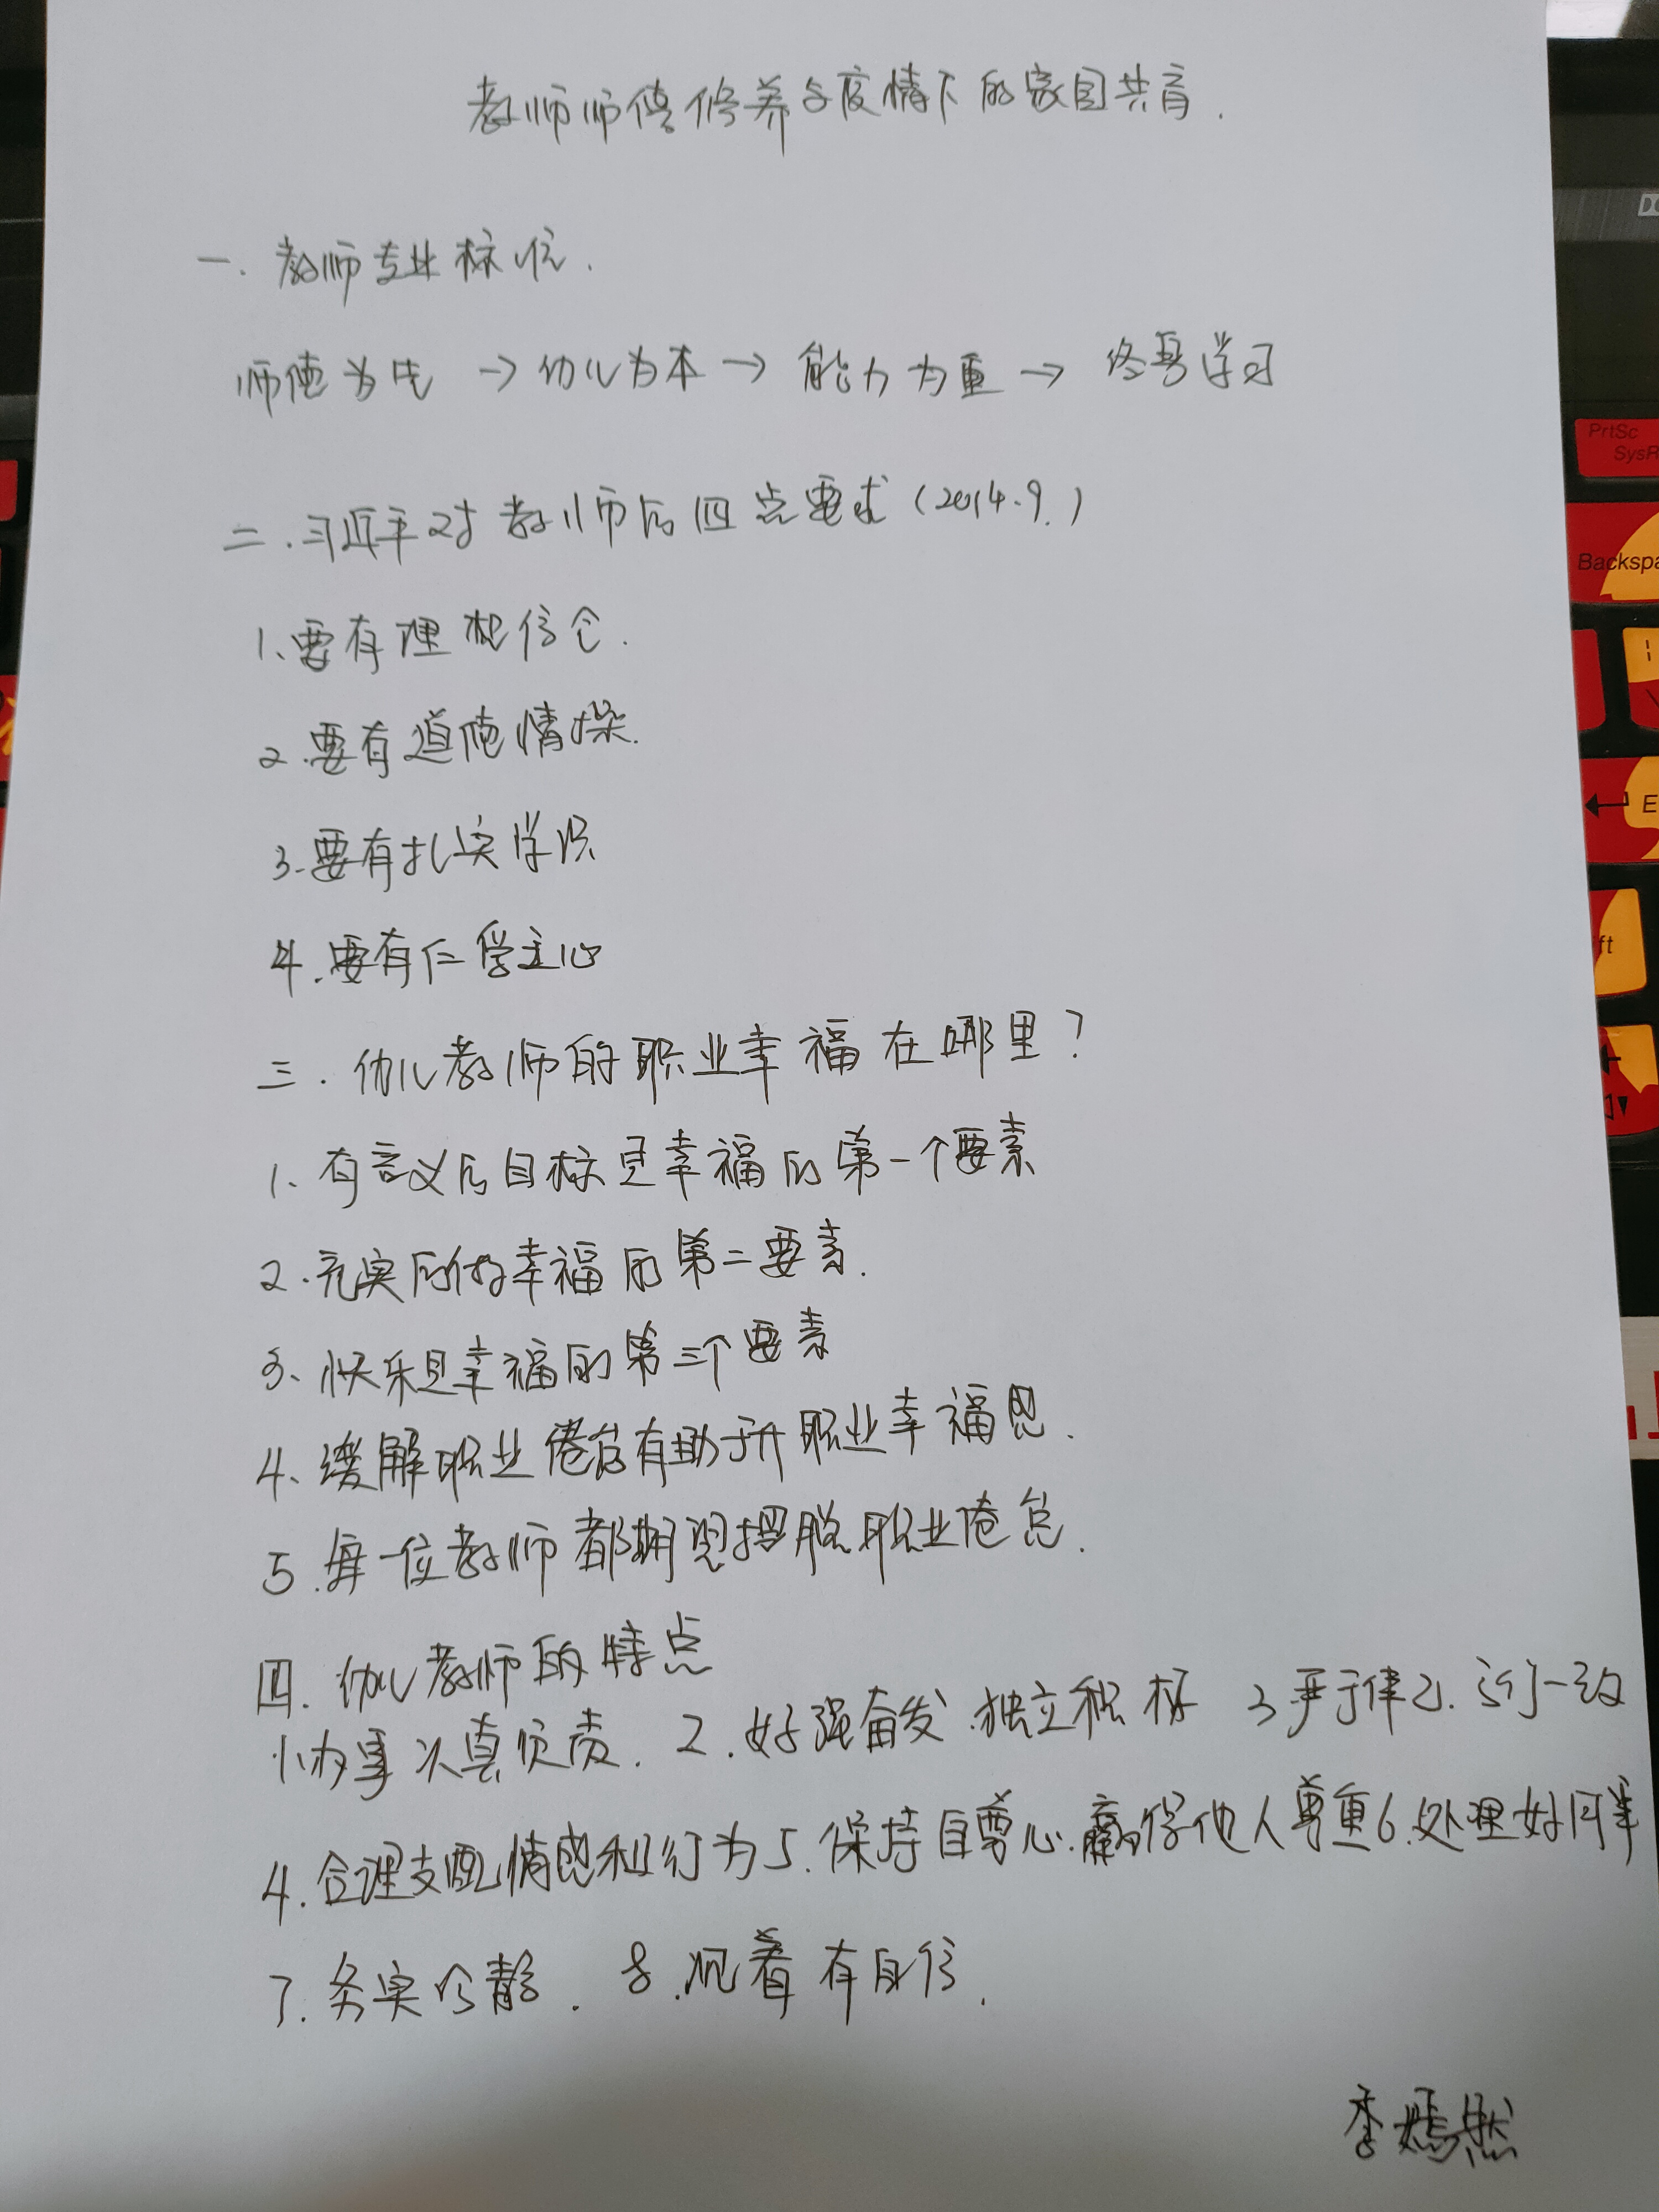 教师师德修养与疫情下的家园共育.
一.教师专业标准.
师德为先→幼儿为本→能力为重→终身学习
二.习近平对教师的四点要求(2014.9.)
1、要有理想信念.
2.要有道德情操.
3.要有扎实学识
4.要有仁学之心
三.幼儿教师的职业幸福在哪里?
1、有意义的目标是幸福的第一个要素
2.充实的幸福的第二要素.
3、快乐是幸福的第三个要素
4、缓解职业倦怠有助于升职业幸福感.
5.每一位教师都期望摆脱职业倦怠.
四.幼儿教师的特点
1、办事认真负责. 2.好强奋发.独立积极 3严于律己.言行一致
4.合理支配情感和行为5.保持自尊心.赢得他人尊重6.处理好同伴
7.务实冷静. 8.沉着有自信.
李嫣然
PrtSc
SysR
Backspa
ft
E